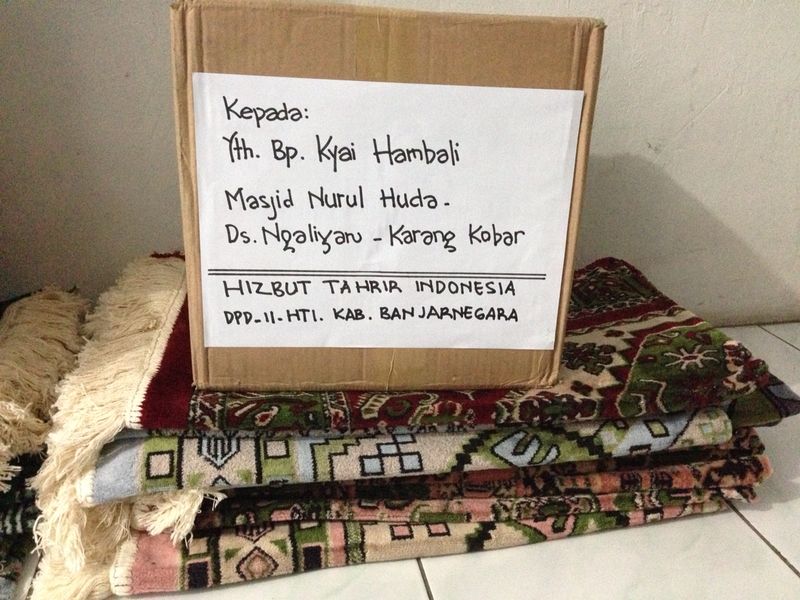 Kepada:
Yth. Bp. Kyai Hambali
Masjid Nurul Huda -
Ds. Ngaliyan - Karang Kobar
HIZBUT TAHRIR INDONESIA
DPD-II-HTI. KAB. BANJARNEGARA